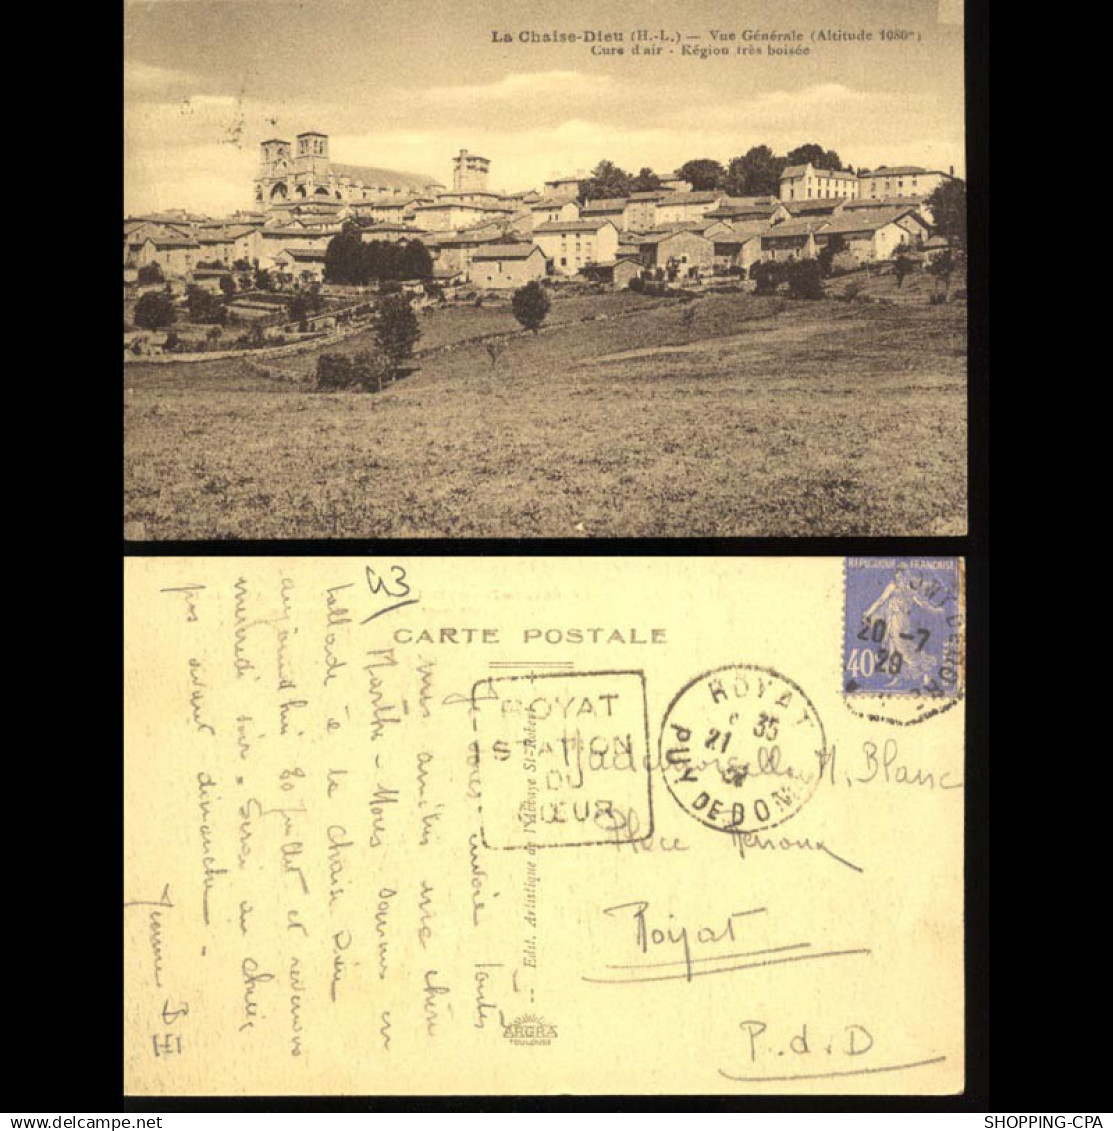 La Chaise-Dieu (H.-L.) — Vue Générale (Altitude 1080m)
Cure d'air - Région très boisée
43
CARTE POSTALE
REPUBLIQUE FRANÇAISE
40
20 -7
29
ROYAT
STATION
DU
CŒUR
ROYAT
35
21
PUY DE DOME
Mademoiselle M. Blanc
Place
Royat
P. d. D
Edit. Artistique de l'Abbaye St-Robert
ARGRA
TOULOUSE
Je vous envoie toutes
mes amitiés ma chère
Marthe - Nous sommes en
ballade à la Chaise Dieu
aujourd'hui 20 Juillet et revenons
mercredi soir.
pas avant dimanche -
Yvonne B
SHOPPING-CPA